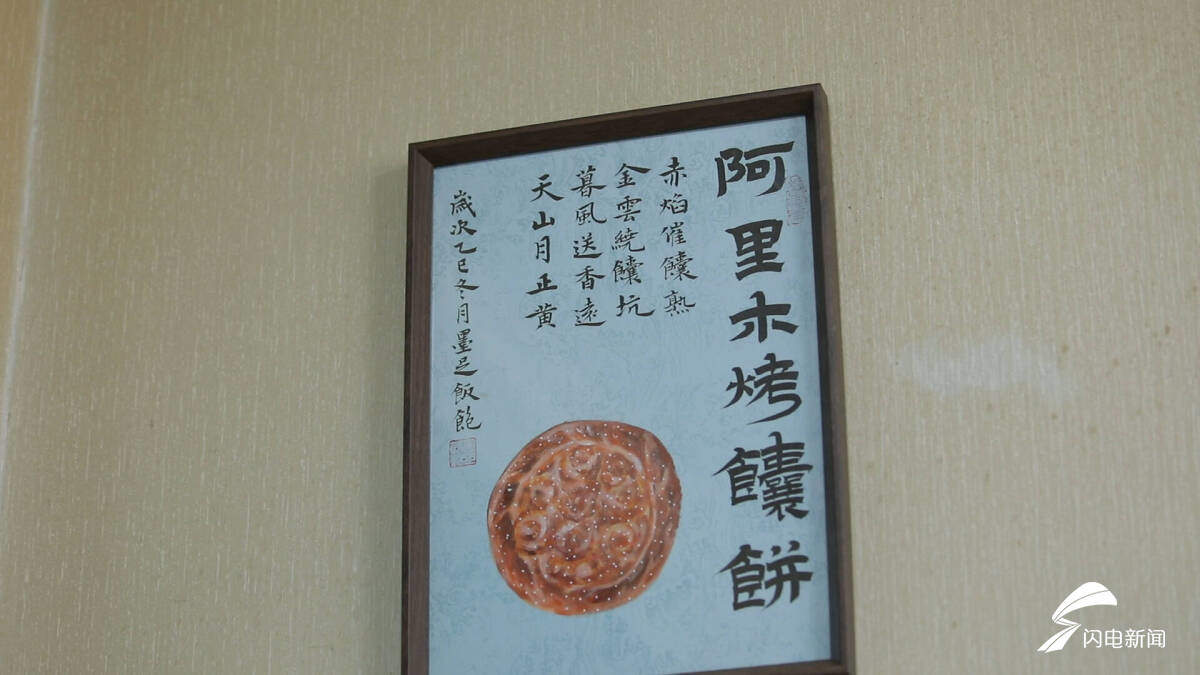 阿里木烤饢餅
赤焰催饢熟
金雲繞饢坑
暮風送香遠
天山月正黄
歲次乙巳冬月墨足飯飽
闪电新闻